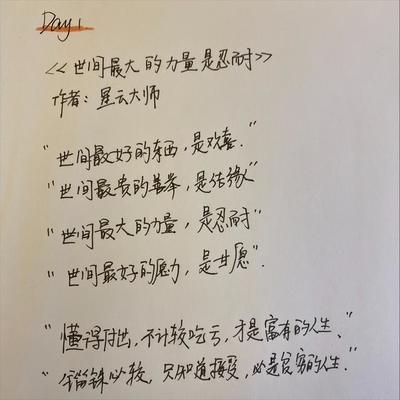 Day1.
<<世间最大的力量是忍耐>>
作者：星云大师
"世间最好的东西，是欢喜."
"世间最贵的善举，是结缘"
"世间最大的力量，是忍耐"
"世间最好的愿力，是甘愿".
"懂得付出，不计较吃亏，才是富有的人生、"
"锱铢必较，只知道接受，必是贫穷的人生."